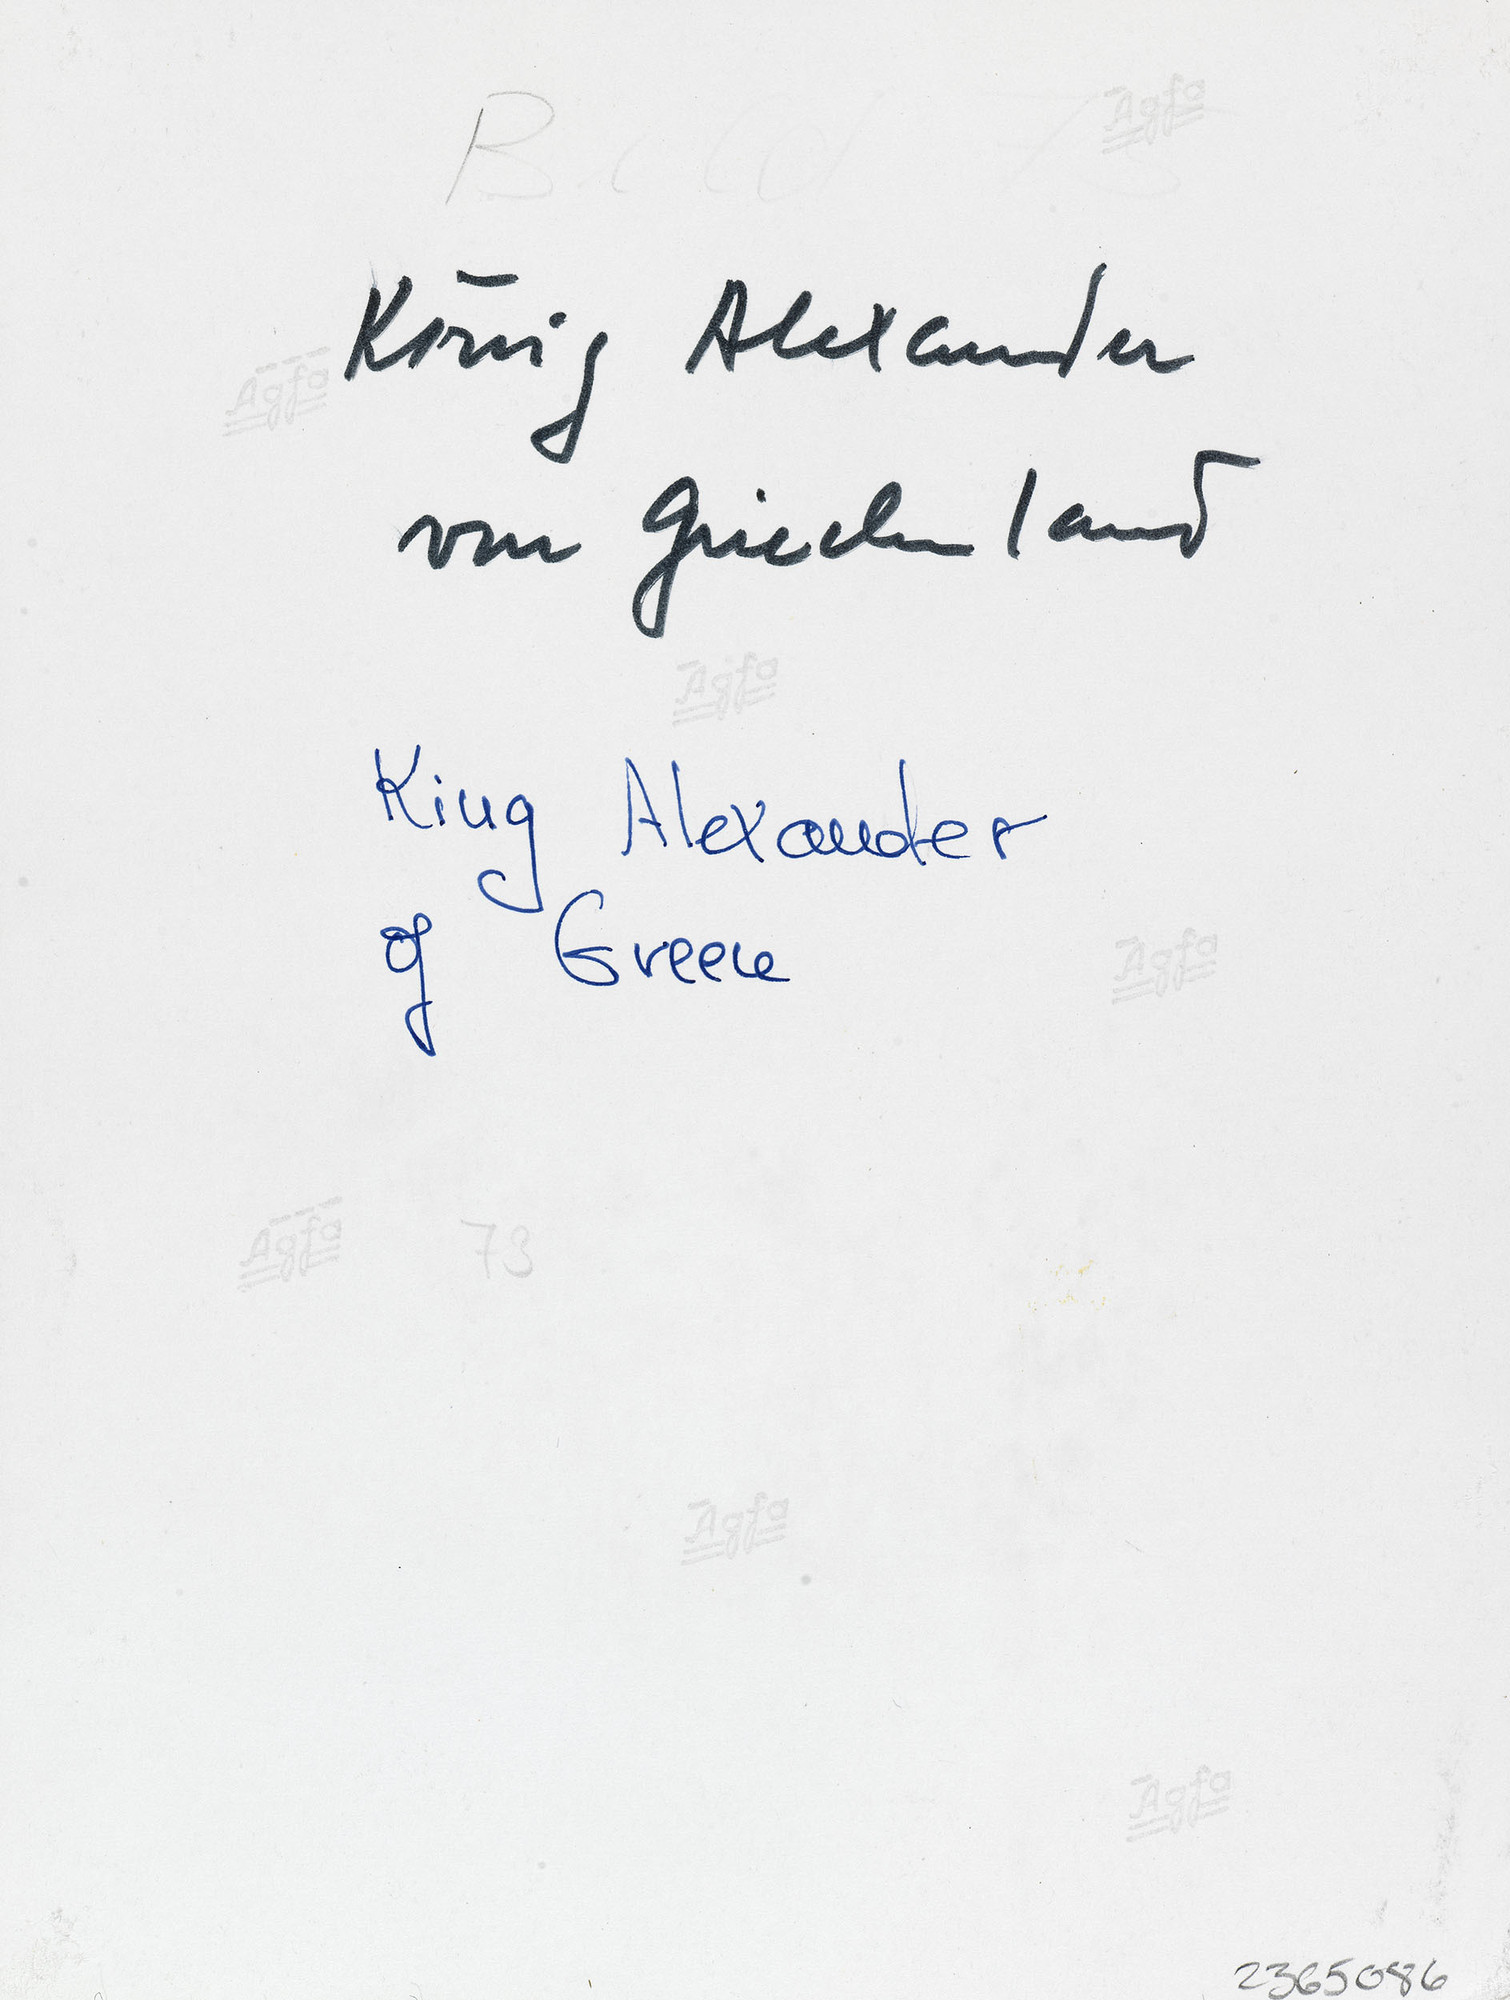 Bild 73
König Alexander
von Griechenland
King Alexander
of Greece
73
2365086
Agfa
Agfa
Agfa
Agfa
Agfa
Agfa
Agfa